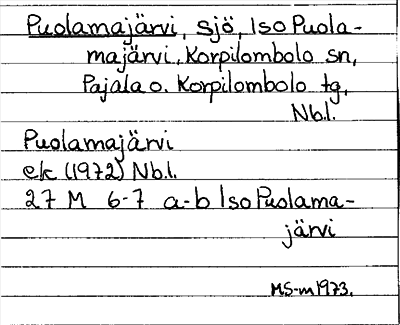 Puolamajärvi, sjö, Iso Puola-
majärvi, Korpilombolo sn,
Pajala o. Korpilombolo tg,
Nb.l.
Puolamajärvi
ek (1972) Nb.l.
27 M 6-7 a-b Iso Puolama-
järvi
MS-m 1973.